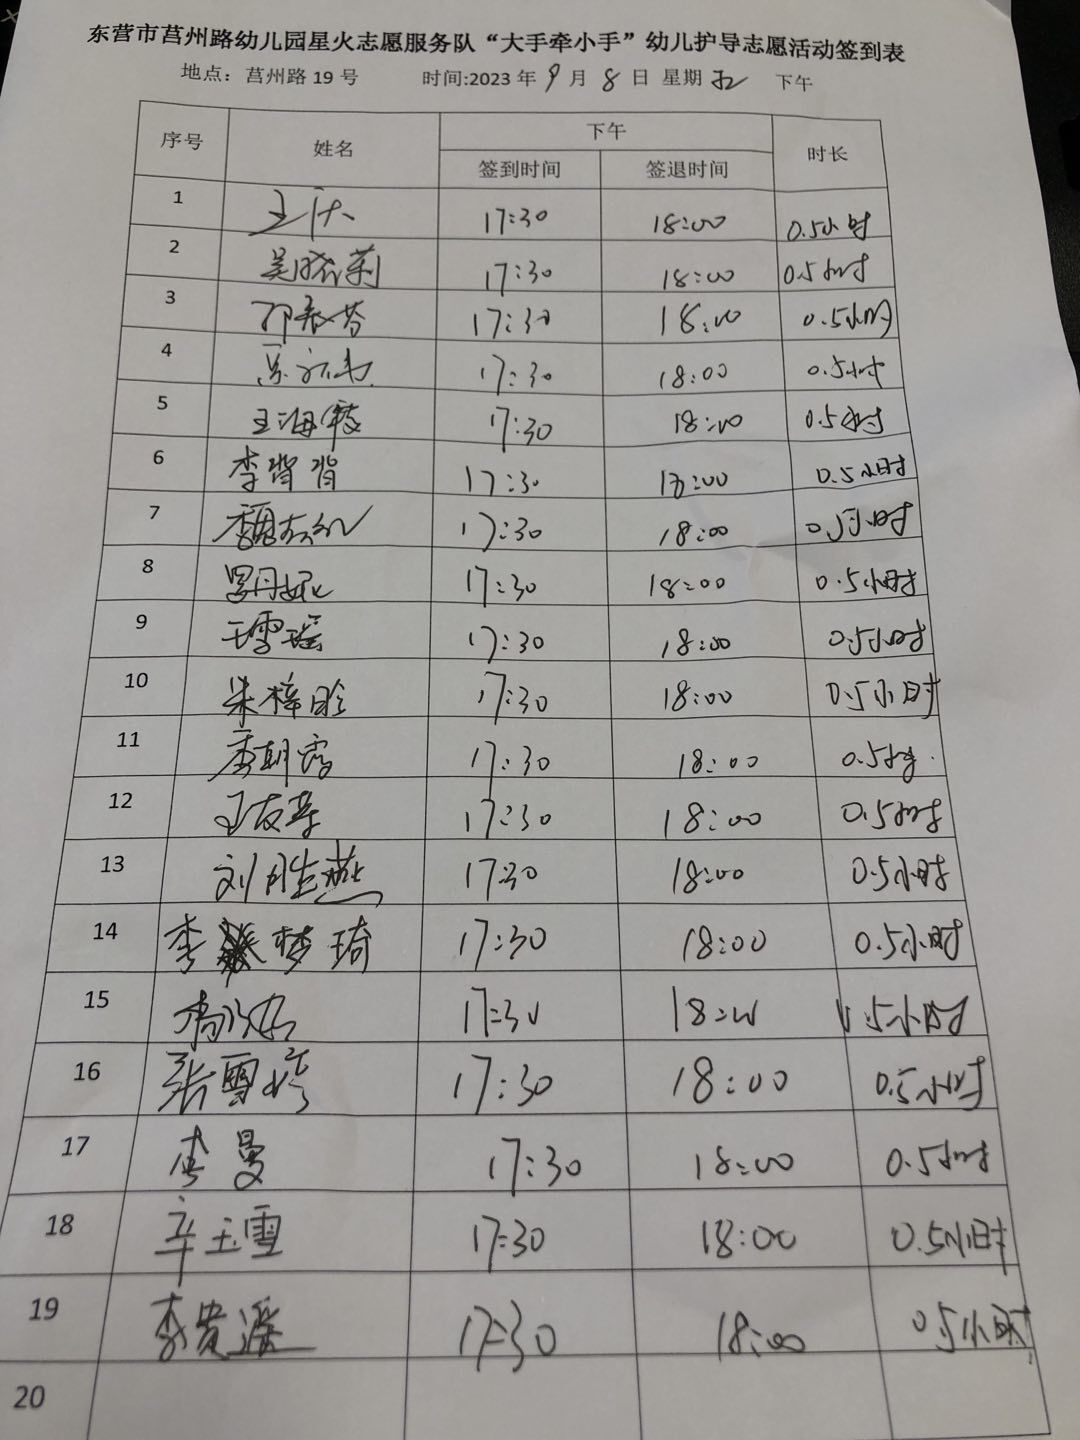 东营市莒州路幼儿园星火志愿服务队“大手牵小手”幼儿护导志愿活动签到表
地点：莒州路 19 号 时间:2023 年 9 月 8 日 星期 五 下午
序号 姓名 下午 时长
签到时间 签退时间
1 17:30 18:00 0.5小时
2 吴晓莉 17:30 18:00 0.5小时
3 17:30 18:00 0.5小时
4 17:30 18:00 0.5小时
5 王海霞 17:30 18:00 0.5小时
6 李背背 17:30 18:00 0.5小时
7 17:30 18:00 0.5小时
8 罗丹妮 17:30 18:00 0.5小时
9 王雪瑶 17:30 18:00 0.5小时
10 朱梓晗 17:30 18:00 0.5小时
11 唐朝霞 17:30 18:00 0.5小时
12 王友苹 17:30 18:00 0.5小时
13 刘胜燕 17:30 18:00 0.5小时
14 李梦琦 17:30 18:00 0.5小时
15 17:30 18:00 0.5小时
16 张雪婷 17:30 18:00 0.5小时
17 李曼 17:30 18:00 0.5小时
18 辛玉雪 17:30 18:00 0.5小时
19 李贵瑶 17:30 18:00 0.5小时
20